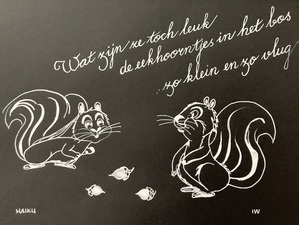 Wat zijn ze tòch leuk
de eekhoorntjes in het bos
..zo klein en zo vlug
HAIKU
IW